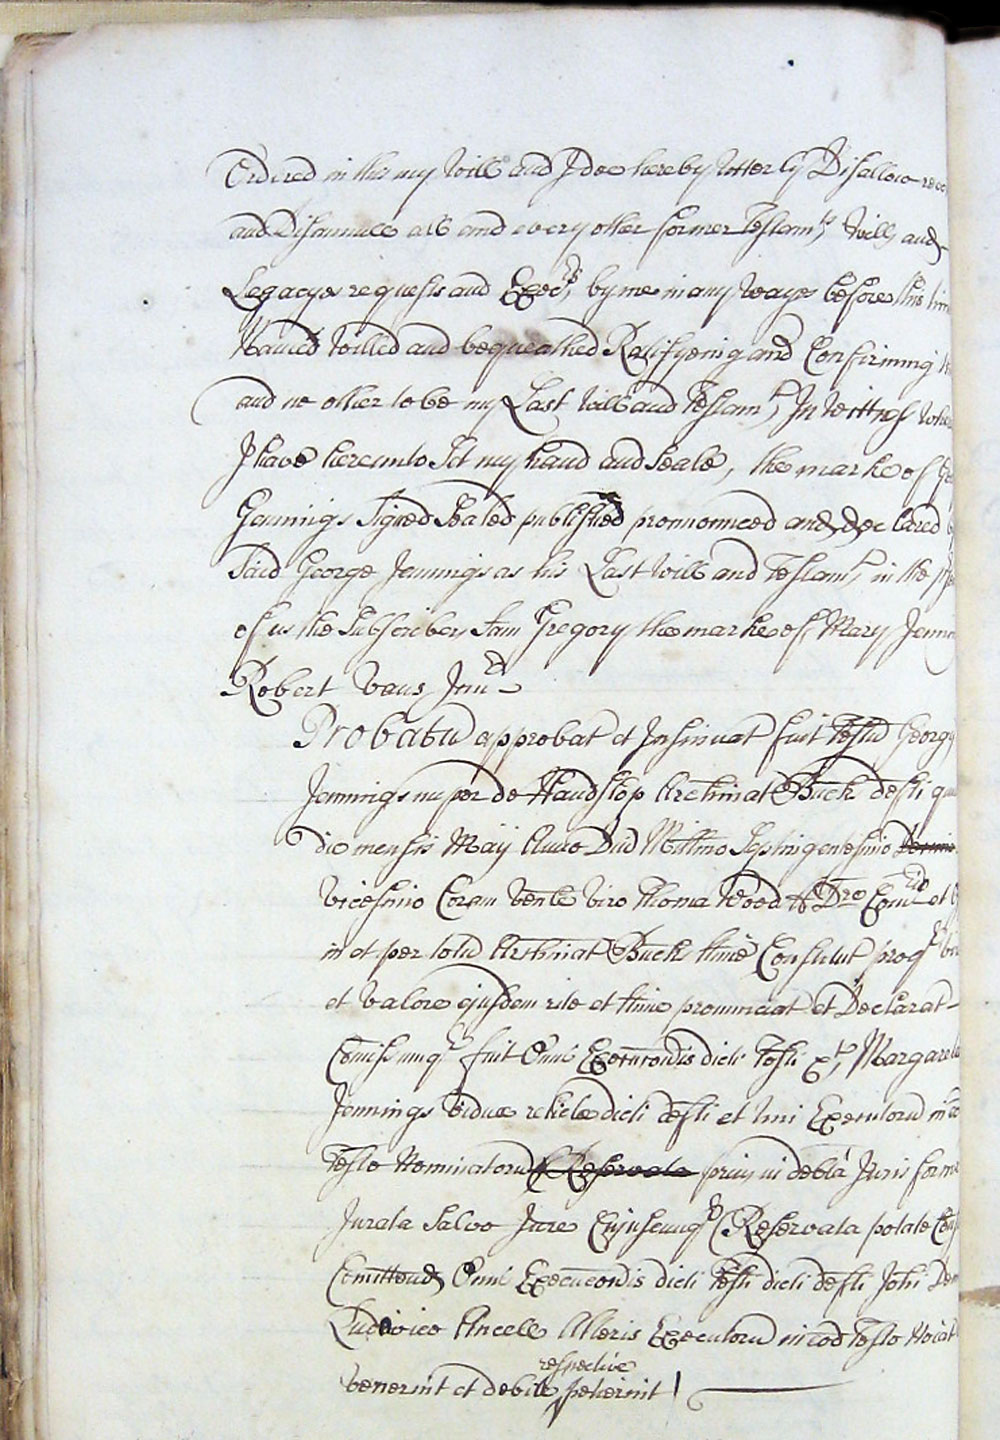 Ordered in this my Will and I doe hereby Utterly Disallow
and Disannull all and every other former Testamts Wills and
Legacyes requests and Execrs, by me in any wayes before this time
Named Willed and bequeathed Ratifyeing and Confirming
and no other to be my Last Will and Testamt, In Wittness
I have hereunto Set my hand and Seale, the marke of
Gennings Signed Sealed published pronounced and declared
Said George Jennings as his Last Will and Testamt, in the
of us the Subscribers Sam Gregory the marke of Mary
Robert Vaus Junr
Probatu approbat et Insinuat fuit Testu Georgy
Jennings nuper de Haudslop Archinat Buck defti
die mensis Maij Anno Dnd Millimo Septingentesimo
Vicesimo Coram Venle Viro Thoma Wood et
in et per totu Archinat Buck Constitut
et Valore ejusdem rite et ltime pronunciat et Declarat
Comissumq fuit Onus Execucondis dicti Testi Margareta
Jennings Viduæ relictæ dicti defti et Uni Executoru in
Testo Nominatoru Reservata prius in debta Juris forma
Jurata Salvo Jure Cujuscunq Reservata potate
Comittend Onus Execucondis dicti Testi dicti defti Johi
Ludovico Ancell Alteris Executoru in eod Testo
respective
venerint et debite petierint